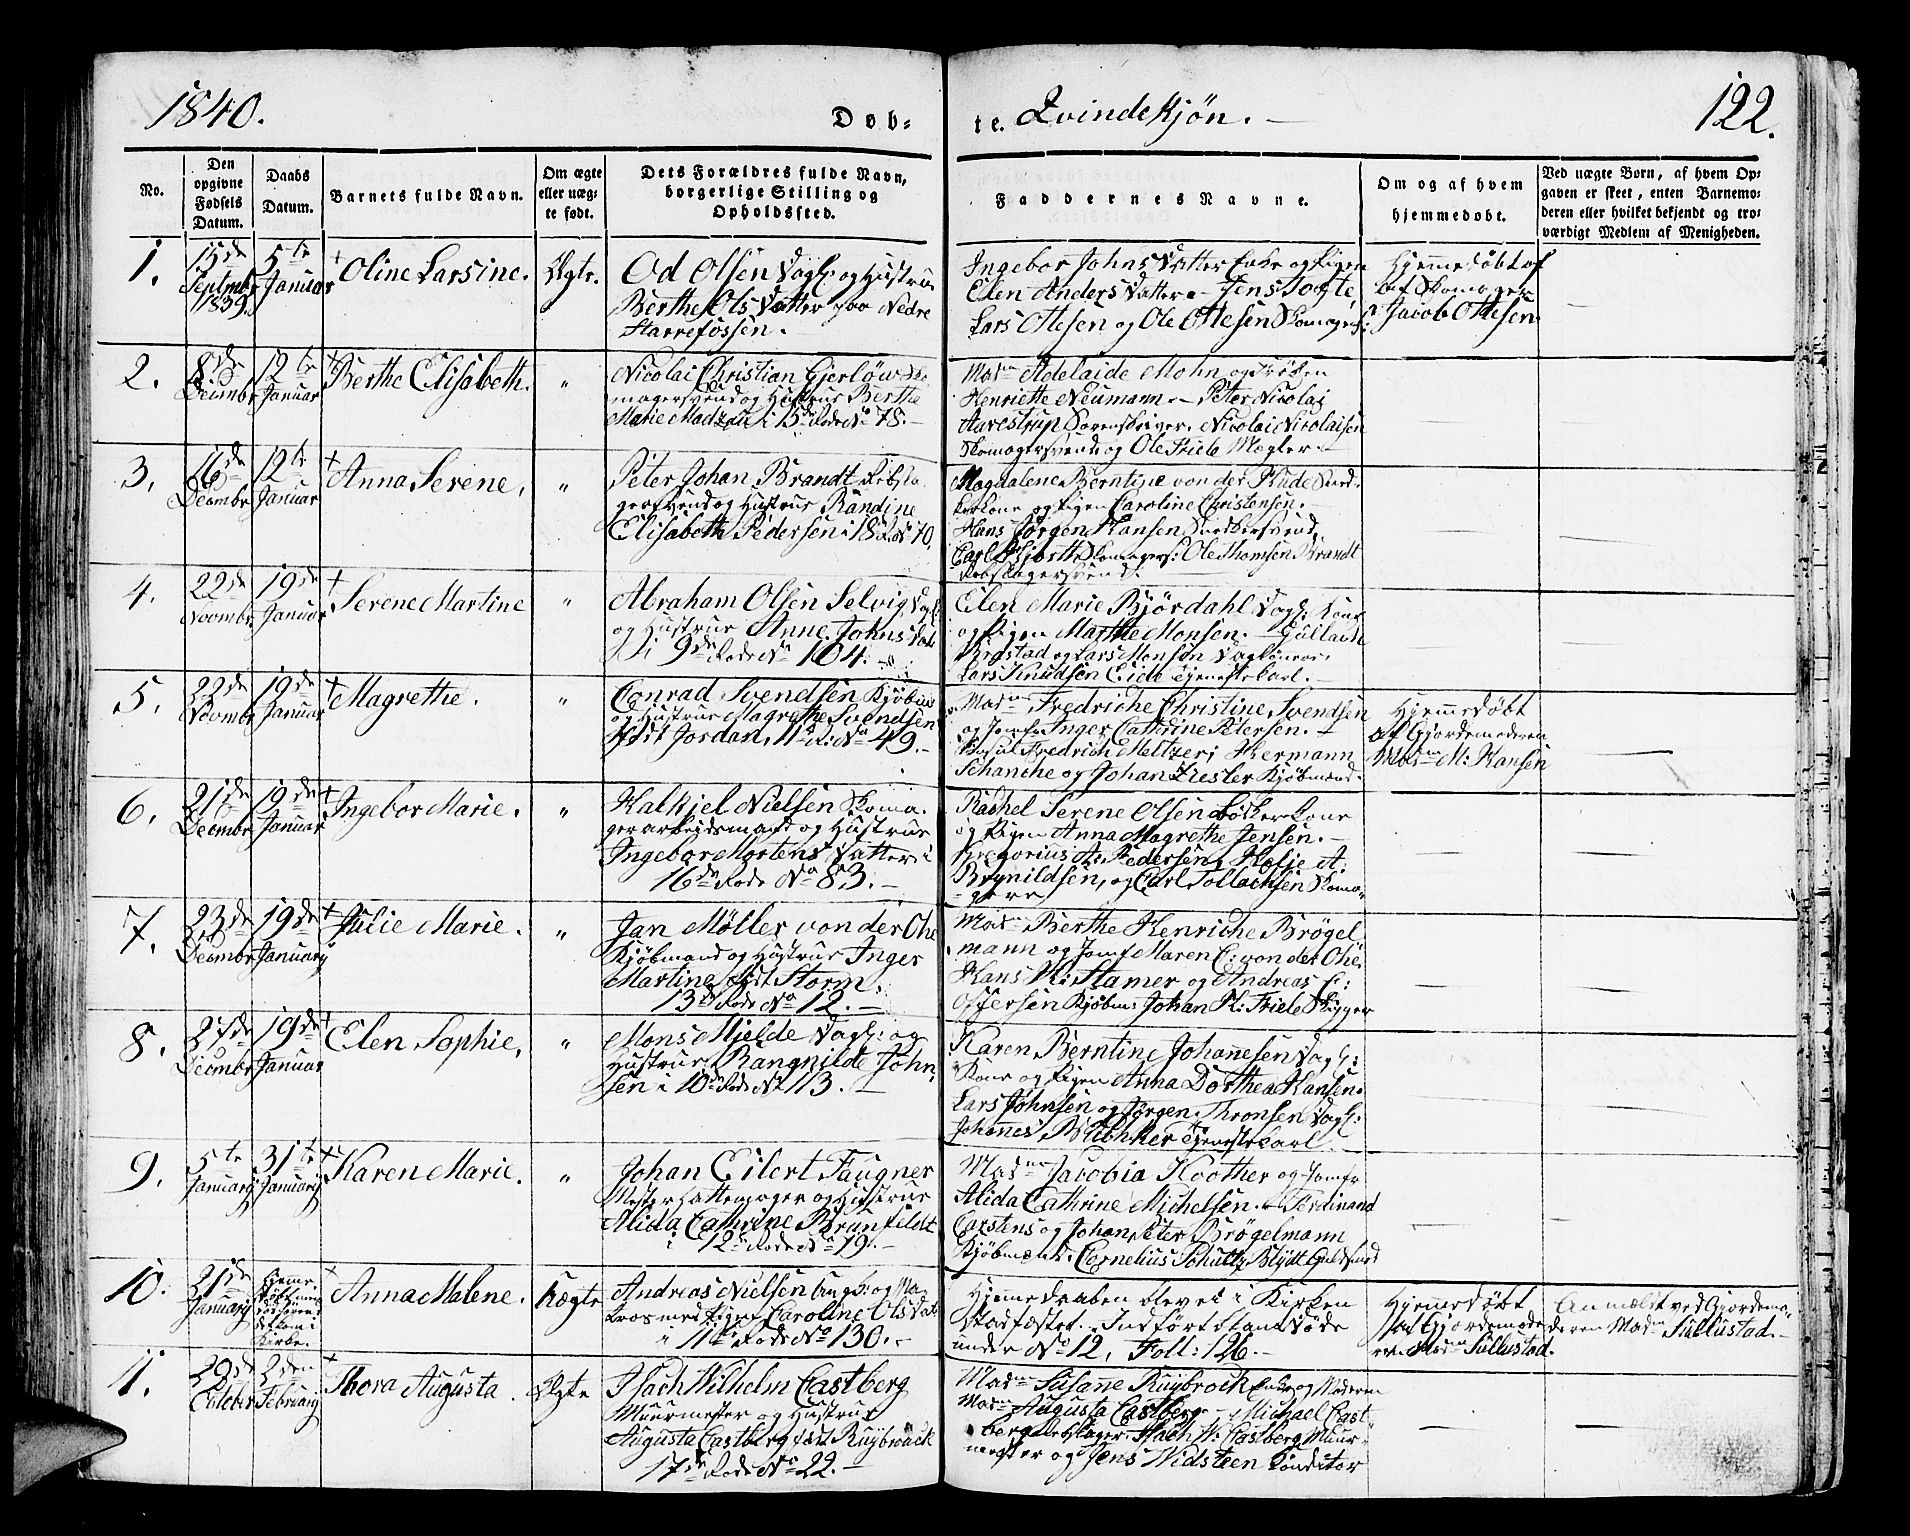 1840.
Døb-
te. Qvindekjøn.
122.
No.
Den opgivne Fødsels Datum.
Daabs Datum.
Barnets fulde Navn.
Om ægte eller uæg-
te født.
Dets Forældres fulde Navn,
borgerlige Stilling og
Opholdssted.
Faddernes Navne.
Om og af hvem
hjemmedøbt.
Ved uægte Børn, af hvem Op-
gaven er skeet, enten Barnemo-
deren eller hvilket bekjendt og tro-
værdigt Medlem af Menigheden.
1.
15de
Septmbr
1839.
5te
Januar
+ Oline Larsine.
Ægte.
Od Olsen Dagl: og Hustrue
Berthe Ols Datter paa Nedre
Starrefossen.
Ingebor Johns Datter Enke og Pigen
Elen Anders Datter. - Jens
Lars Ottesen og Ole Ottesen Skomagers:
Hjemmedøbt af
Skomager
Jacob Ottesen
2.
8de
Decmbr
12te
Januar
+ Berthe Elisabeth.
"
Nicolai Christian Gjerløw Sko-
magersvend og Hustrue Berthe
Marie Madzen i 13de Rode No 78.
Madm Adelaide Mohn og Frøken
Henriette Neumann. - Peter Nicolai
Aarestrup Sorenskriver. Nicolai Nicolaisen
Skomagersvend og Ole Friele Mægler.
3.
16de
Decmbr
12te
Januar
+ Anna Serene.
"
Peter Johan Brandt Rebsla-
gersvend og Hustrue Randine
Elisabeth Pedersen i 18 R. No 70.
Magdalene Berntine von der Hude Sned-
kerkone og Pigen Caroline Christensen.
Hans Jørgen Hansen Snedkersvend,
Carl Hjorth Skomagers: Ole Thomsen Brandt
Rebslagersvend.
4.
22de
Novmbr
19de
Januar
+ Serene Martine
"
Abraham Olsen Selvig, Dagl:
og Hustrue Anne Johns Datter
i 9de Rode No 104.
Elen Marie Bjørdahl Dagl: Kone
og Pigen Marthe Monsen. -
og Lars Monsen Daglønner.
Lars Knudsen Eide Tjenestekarl.
5.
22de
Novmbr
19de
Januar
+ Magrethe.
"
Conrad Svendsen Kjøbm
og Hustrue Magrethe Svendsen
født Jordan, 11te R: No 49.
Madm Fredriche Christine Svendsen
og Jomf: Inger Cathrine Petersen. -
Fredrich Meltzer; Hermann
Schanche og Johan Fiesler Kjøbmænd.
Hjemmedøbt
af Gjordemoderen
Madm M: Hansen
6.
21de
Decmbr
19de
Januar
+ Ingebor Marie.
"
Halkjel Nielsen Skoma-
gerarbeidsmand og Hustrue
Ingebor Mortens Datter i
16de Rode No 83.
Rachel Serene Olsen Bødkerkone
og Pigen Anna Magrethe Jensen.
Gregorius A: Pedersen, A.
Brynildsen, og Carl Tollachsen Skoma-
gere
7.
23de
Decmbr
19de
January
+ Julie Marie.
"
Jan Møller von der Ohe
Kjøbmand og Hustrue Inger
Martine født Storm.
13de Rode No 12.
Madm Berthe Henriche Brøgel
mann og Jomf Maren C: von der Ohe.
Hans K: Stamer og Andreas C:
Kjøbm: Johan K: Friele Skipper
8.
27de
Decmbr
19de
Januar
+ Elen Sophie.
"
Mons Mjelde Dagl: og
Hustrue Rangnilde John-
sen i 10de Rode No 113.
Karen Berntine Johannesen Dagl:
Kone og Pigen Anna Dorthea Hansen.
Lars Johnsen og Jørgen Thronsen Dagl:
Johannes Tjenestekarl.
9.
5te
January
31te
January
+ Karen Marie.
"
Johan Eilert Faugner
Mester Hattemager og Hustrue
Alida Cathrine Brunfeldt
i 12te Rode No 19.
Madme Jacobia Koother og Jomfr
Alida Cathrine Michelsen. Ferdinand
Carstens og Johan Peter Brøgelmann
Kjøbmænd. Cornelius Schultz Blydt Guldsmed
10.
21de
January
Hjemme-
døbt
Kirke.
+ Anna Malene.
Uægte
Andreas Nielsen Ungk: og Ma-
tros med Pigen Caroline Ols Datt
i 11te Rode No 130.
Hjemmedaaben blev ei i Kirken
stadfæstet. Indført blandt Døde
under No 12, Foll: 126.
Hjemmedøbt
af Gjordemode
ren Madm Süllustad.
Anmeldt ved Gjordemo-
deren Madm Süllustad.
11.
29de
Octobr
2den
February
+ Thora Augusta.
Ægte
Isach Wilhelm Castberg
Muurmester og Hustrue
Augusta Castberg født Ruÿbrock
17de Rode No 22.
Madm Susanne Ruÿbrock Enke og Moderen
Madm Augusta Castberg - Michael Cast-
berg Isach W: Castberg Muur-
mester og Jens Widsteen Konditor